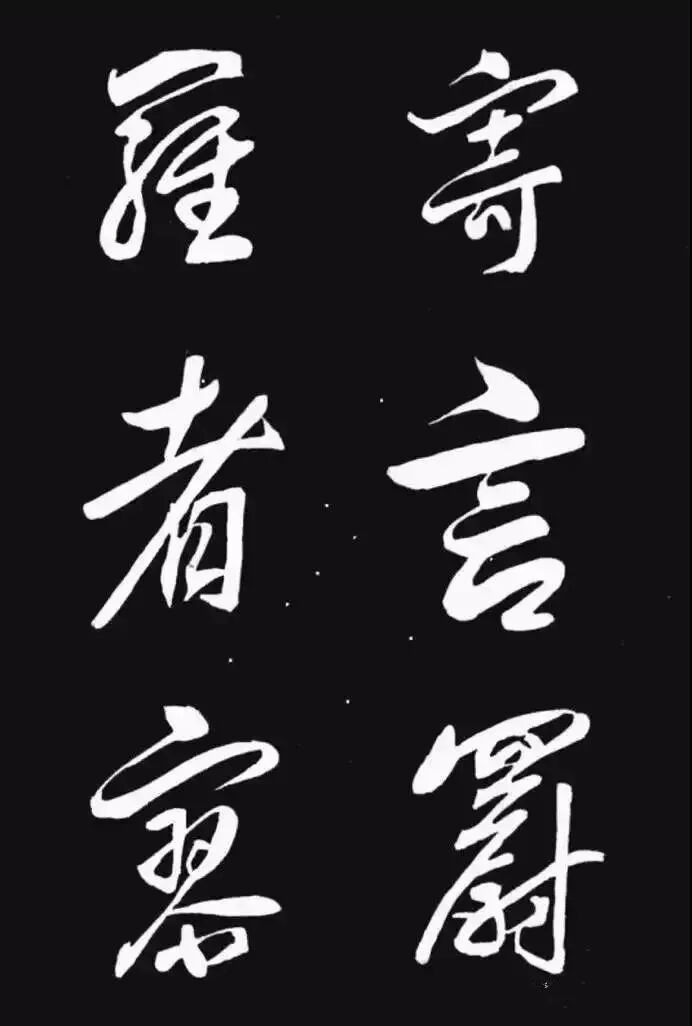 寄言罻
羅者寥